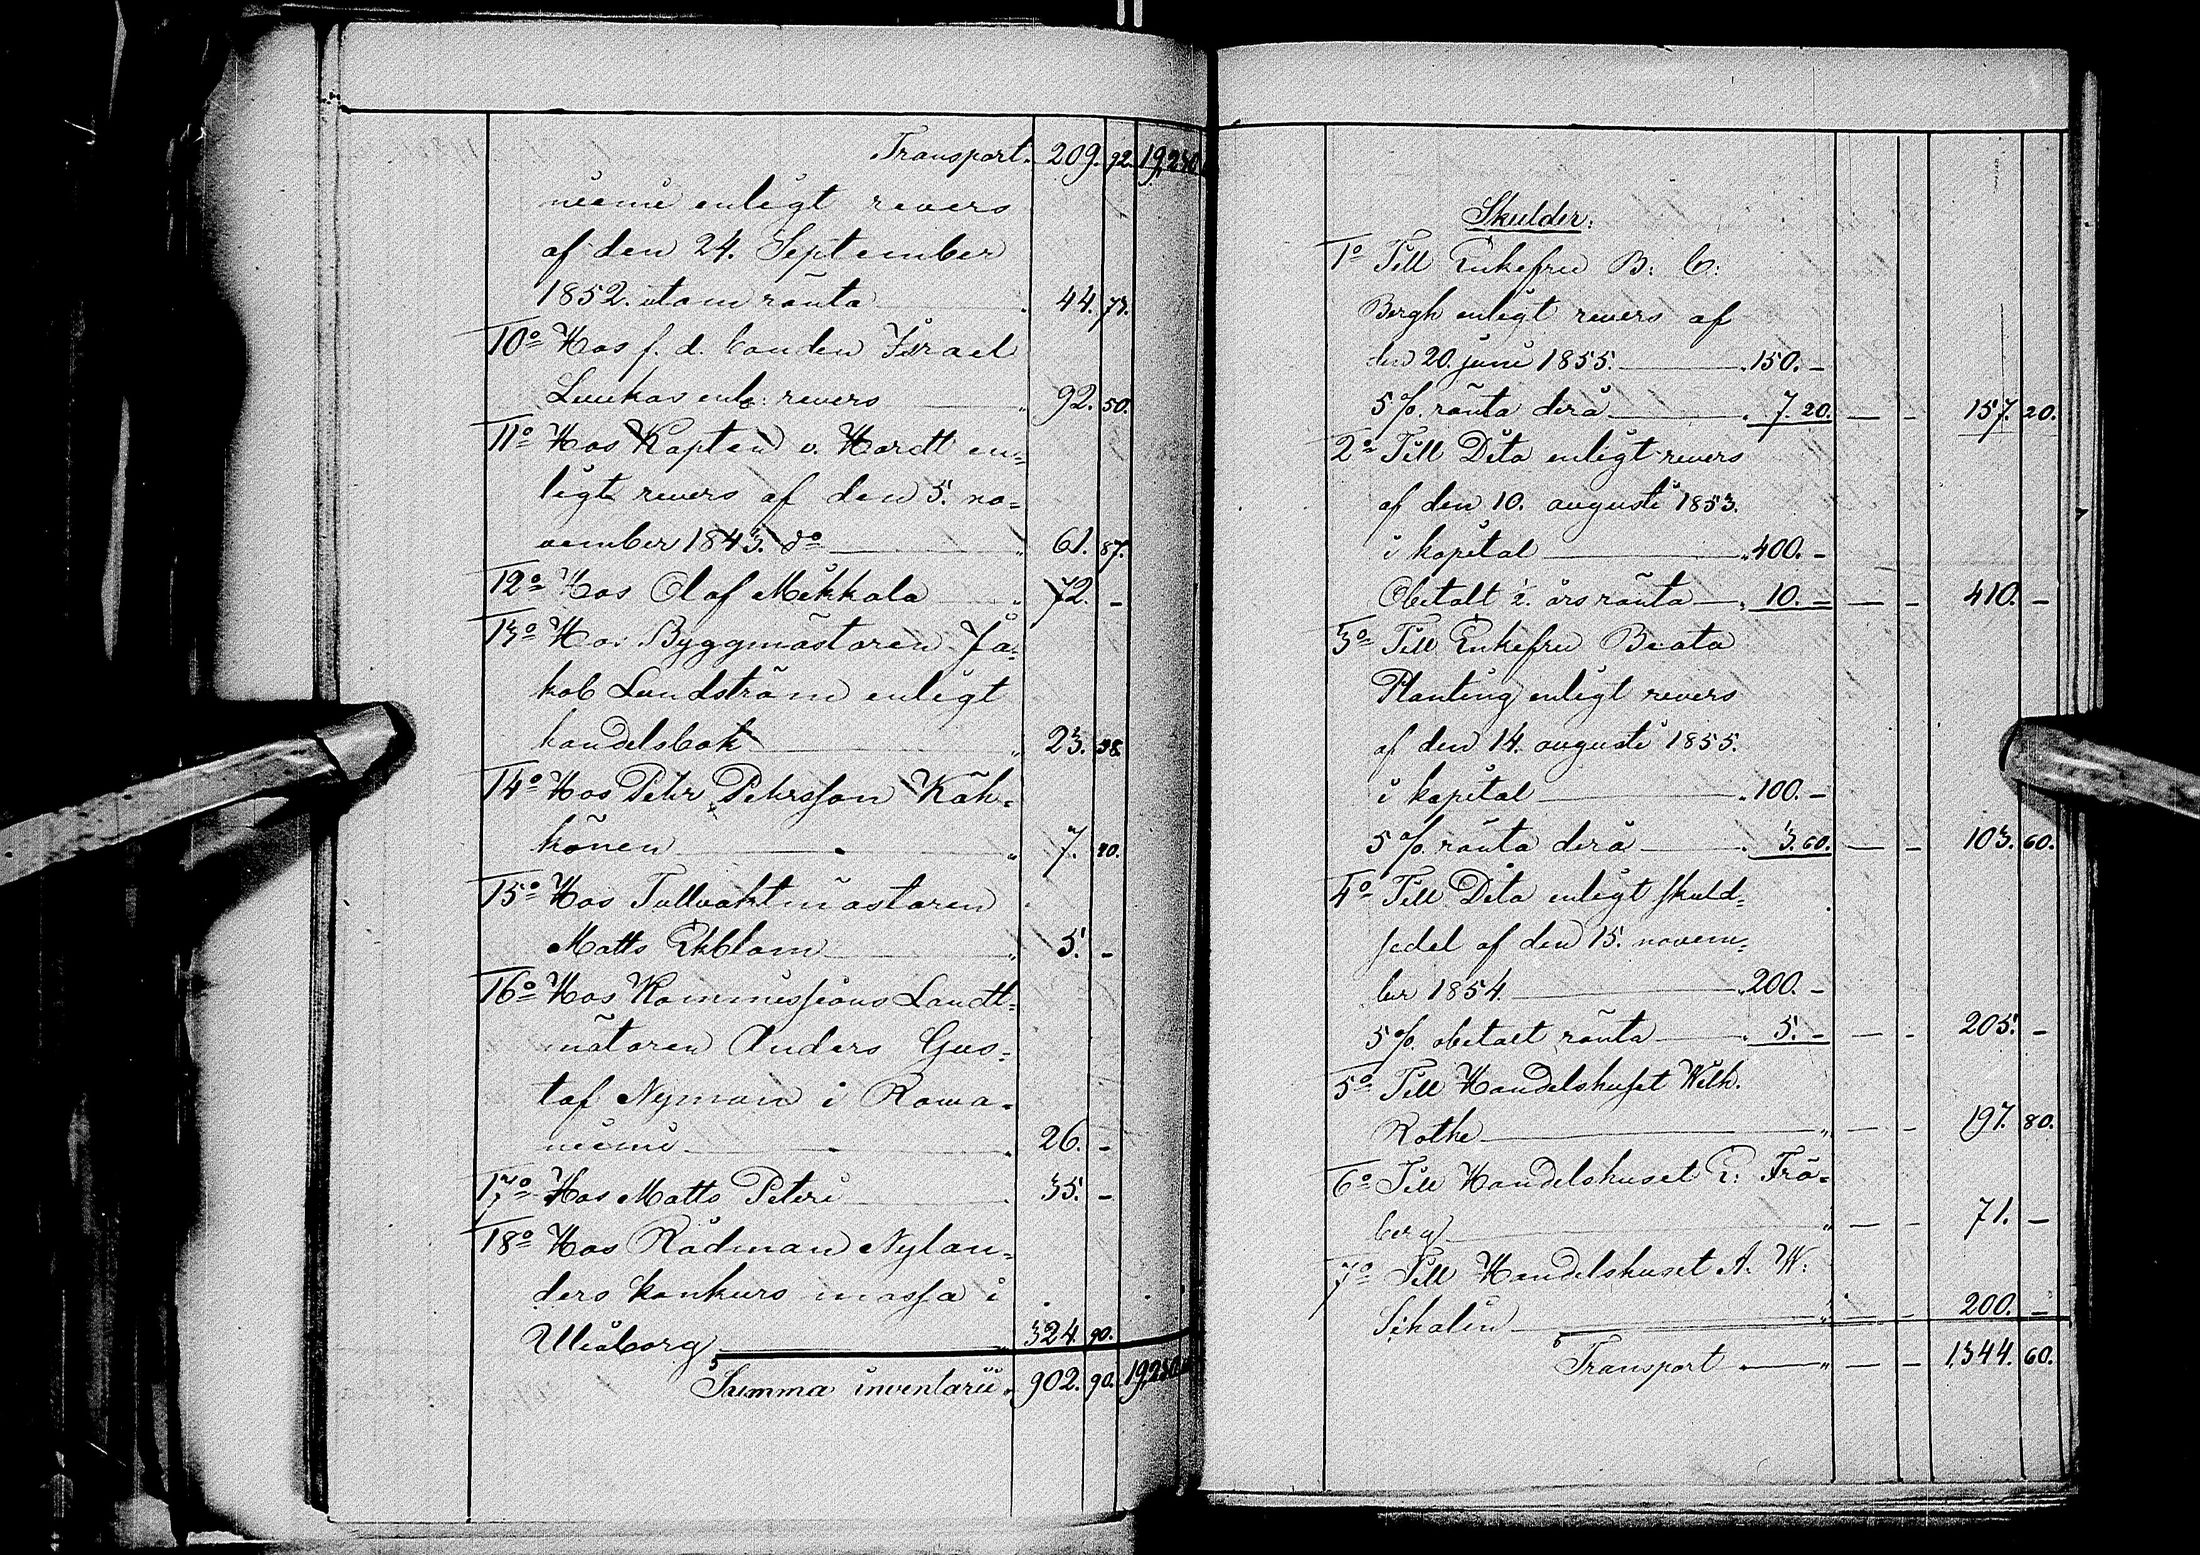 Transport. 209. 92. 19,230
nieemi enligt revers
af den 24. September
1852. utom ränta 44. 73.
10o Hos f. d. bonden Israel
Luukas enl: revers 92. 50.
11o Hos Kapten v. Hardtt en=
ligt revers af den 5. no=
vember 1843. do 61. 87.
12o Hos Olof Mikkala 72. –
13o Hos Byggmästaren Ja=
kob Lundström enligt
handelsbok 23. 38.
14o Hos Petter Petersson Käh=
könen 7. 20.
15o Hos Tullvaktmästaren
Matts Ekblom 5. –
16o Hos Kommissions Landt=
mätaren Anders Gus=
taf Nyman i Rowa=
nieemi 26. –
17o Hos Matts Peteri 35. –
18o Hos Rådman Nylan=
ders konkurs massa i
Uleåborg 324. 90.
Summa inventarii 902. 90. 19,230
Skulder:
1o Till Enkefru B: C:
Bergh enligt revers af
den 20. juni 1855. 150. –
5 % ränta derå 7. 20. – – 157. 20.
2o Till Dito enligt revers
af den 10. augusti 1853.
i kapital 400. –
Obetalt ½. års ränta 10. – – – 410. –
3o Till Enkefru Beata
Planting enligt revers
af den 14. augusti 1855.
i kapital 100. –
5 % ränta derå 3. 60. – – 103. 60.
4o Till Dito enligt skuld=
sedel af den 15. novem=
ber 1854. 200. –
5 % obetalt ränta 5. – – – 205. –
5o Till Handelshuset Wilh.
Rothe – – 197. 80.
6o Till Handelshuset E: Frö=
berg – – 71. –
7o Till Handelshuset A. W:
Sihalin – – 200. –
Transport – – 1,344. 60.